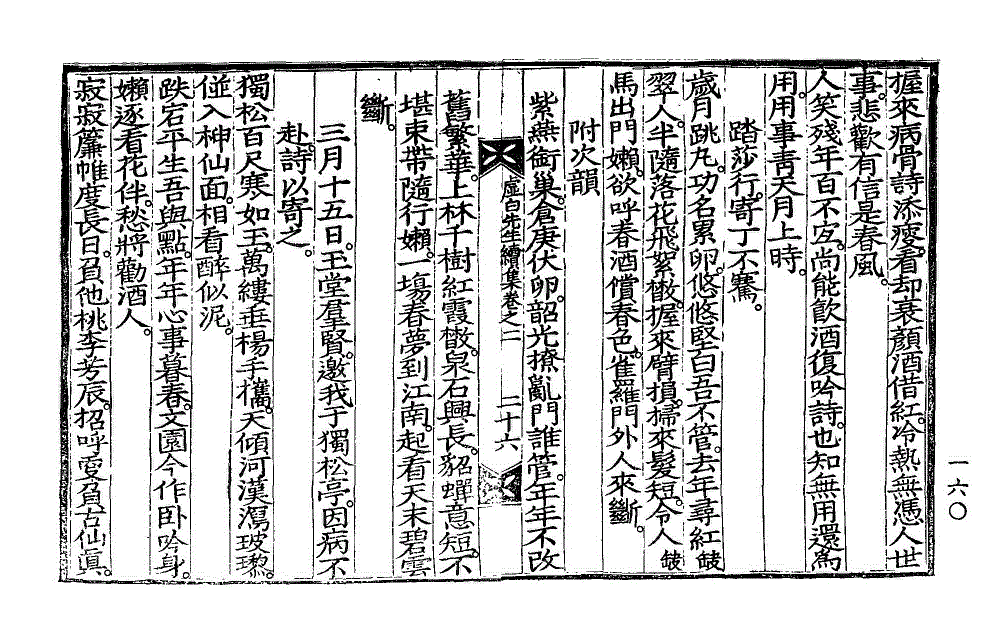 握來病骨詩添瘦。看却衰顏酒借紅。冷熱無憑人世
事。悲歡有信是春風。
人笑殘年百不宜。尙能飮酒復吟詩。也知無用還爲
用。用事靑天月上時。
踏莎行。寄丁不騫。
歲月跳丸。功名累卵。悠悠堅白吾不管。去年尋紅 缺
翠人。半隨落花飛絮橵。握來臂損。掃來髮短。令人 缺
馬出門嬾。欲呼春酒償春色。雀羅門外人來斷。
附次韻
紫燕銜巢。倉庚伏卵。韶光撩亂門誰管。年年不改
虛白先生續集卷之二 二十六
舊繁華。上林千樹紅霞橵。泉石興長。貂蟬意短。不
堪束帶隨行嬾。一場春夢到江南。起看天末碧雲
斷。
三月十五日。玉堂羣賢。邀我于獨松亭。因病不
赴。詩以寄之。
獨松百尺寒如玉。萬縷垂楊手攜。天傾河漢瀉玻瓈。
傞入神仙面。相看醉似泥。
跌宕平生吾與點。年年心事暮春。文園今作臥吟身。
嬾逐看花伴。愁將勸酒人。
寂寂簾帷度長日。負他桃李芳辰。招呼更負古仙眞。
一六〇